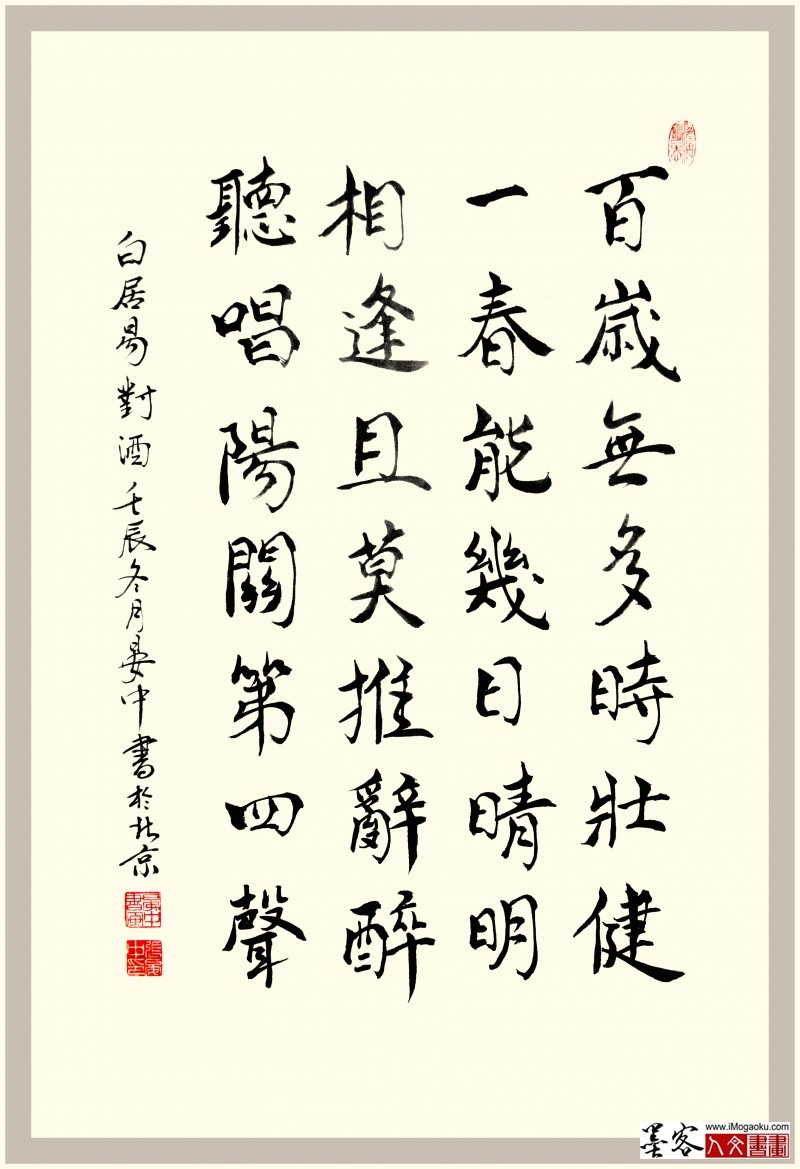 百歲無多時壯健
一春能幾日晴明
相逢且莫推辭醉
聽唱陽關第四聲
白居易對酒 壬辰冬月晏中書於北京
墨客
www.iMogaoku.com
人文書畫